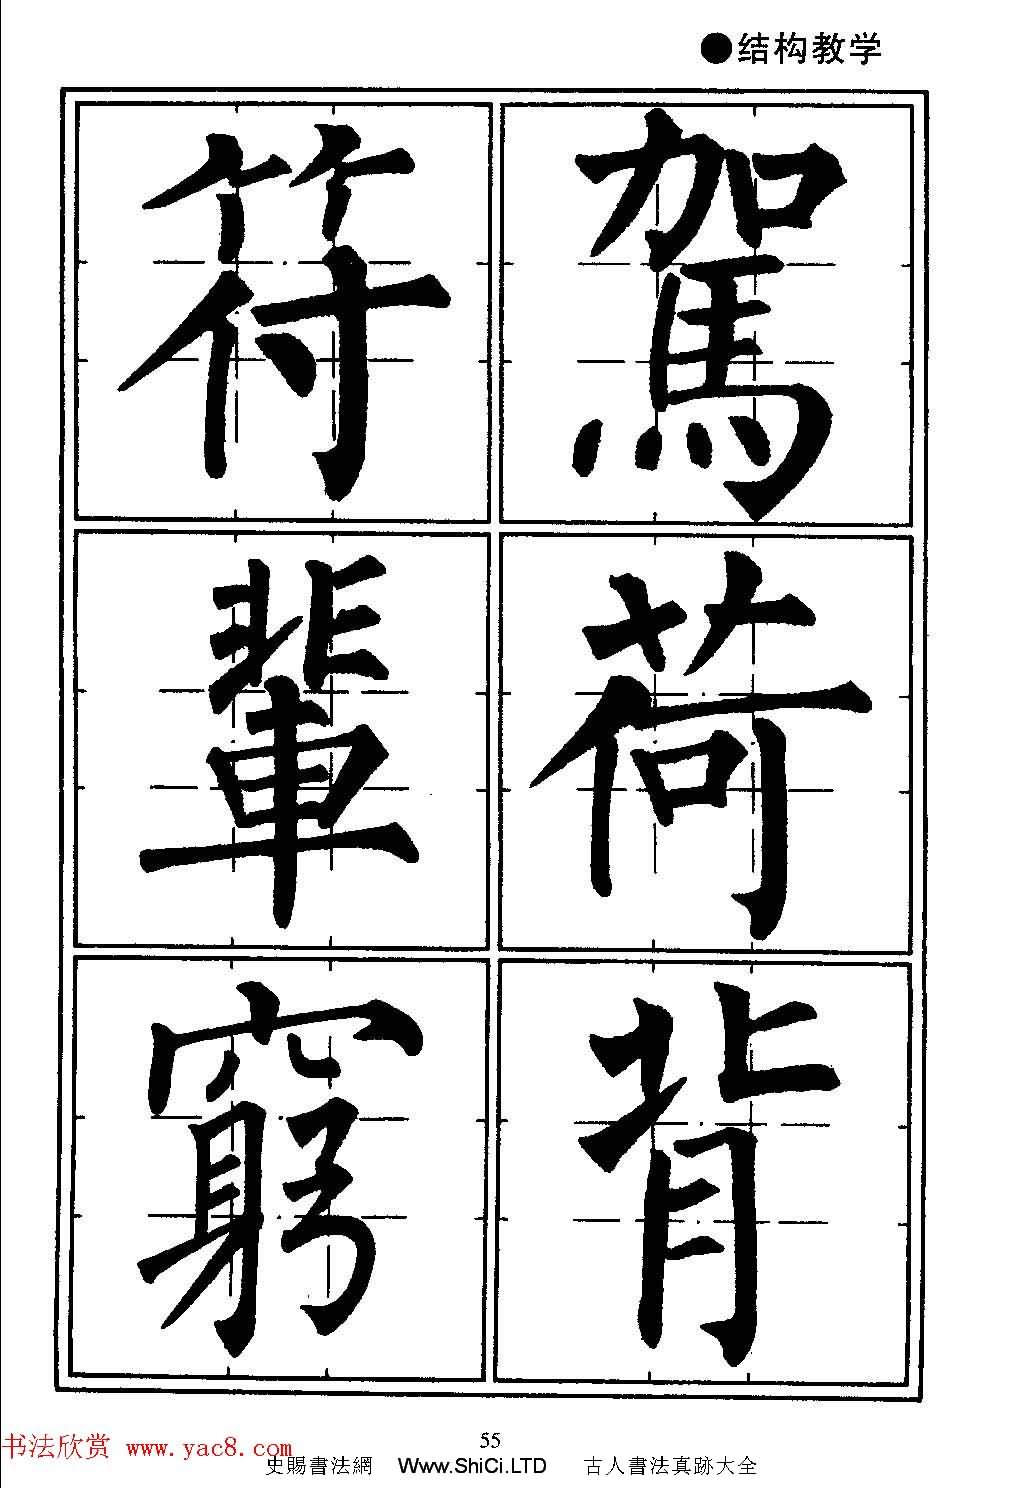 ●结构教学
駕
荷
背
符
輩
窮
55
书法欣赏 www.yac8.com
史賜書法網 Www.ShiCi.LTD 古人書法真跡大全